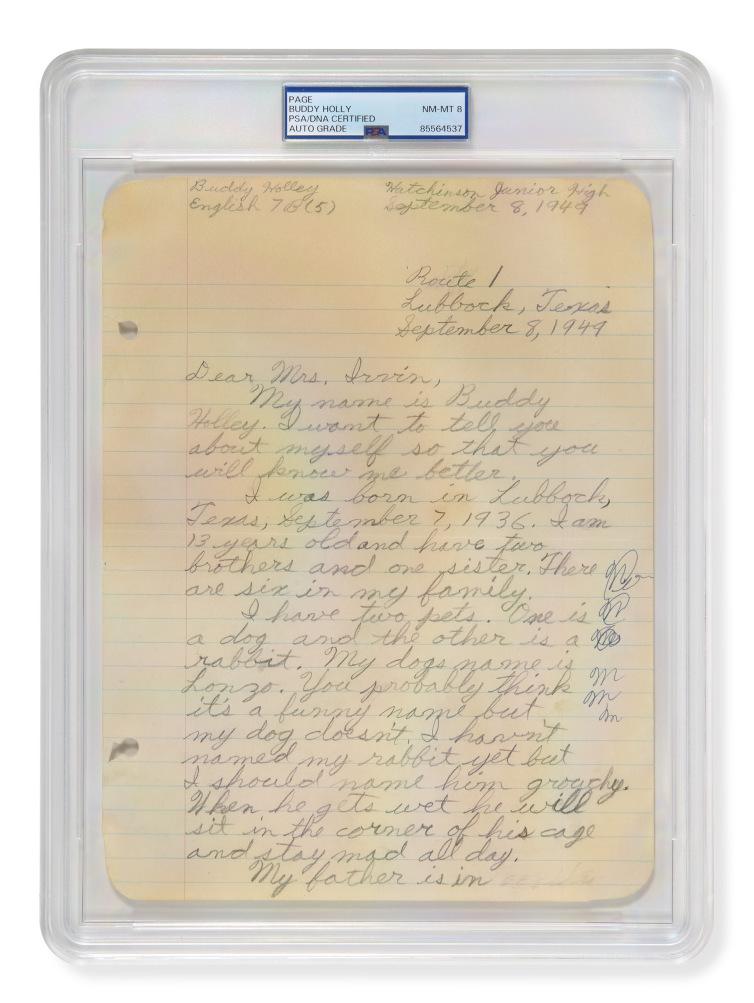 PAGE
BUDDY HOLLY NM-MT 8
PSA/DNA CERTIFIED
AUTO GRADE PSA 85564537
Buddy Holley Hutchinson Junior High
English 7B(5) September 8, 1949
Route 1
Lubbock, Texas
September 8, 1949
Dear Mrs. Irvin,
My name is Buddy
Holley. I want to tell you
about myself so that you
will know me better.
I was born in Lubbock,
Texas, September 7, 1936. I am
13 years old and have two
brothers and one sister. There
are six in my family.
I have two pets. One is
a dog and the other is a
rabbit. My dogs name is
Lonzo. You probably think
it's a funny name but
my dog doesn't. I havn't
named my rabbit yet but
I should name him grouchy.
When he gets wet he will
sit in the corner of his cage
and stay mad all day.
My father is in
M
M
m